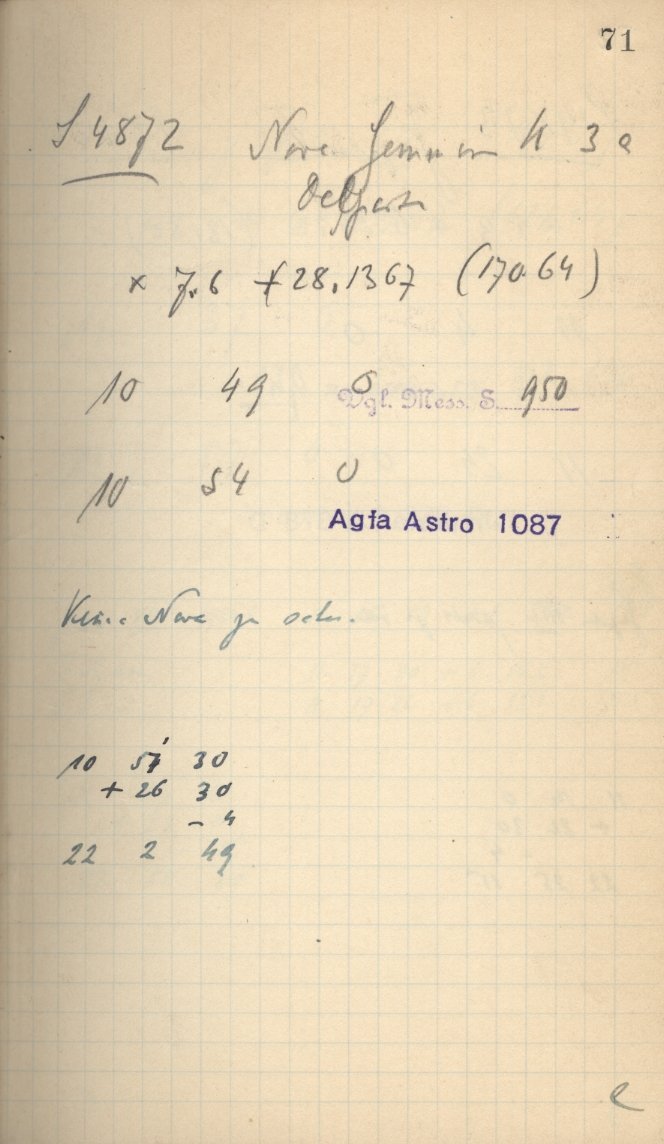 71
S 4872 Nova Geminin K 3 a
Delporte
× 7.6 +28.1367 (170.64)
10 49 0
Vgl. Mess. S. 950
10 54 0
Agfa Astro 1087
Keine Nova zu sehn.
10 51 30
+ 26 30
- 4
22 2 49